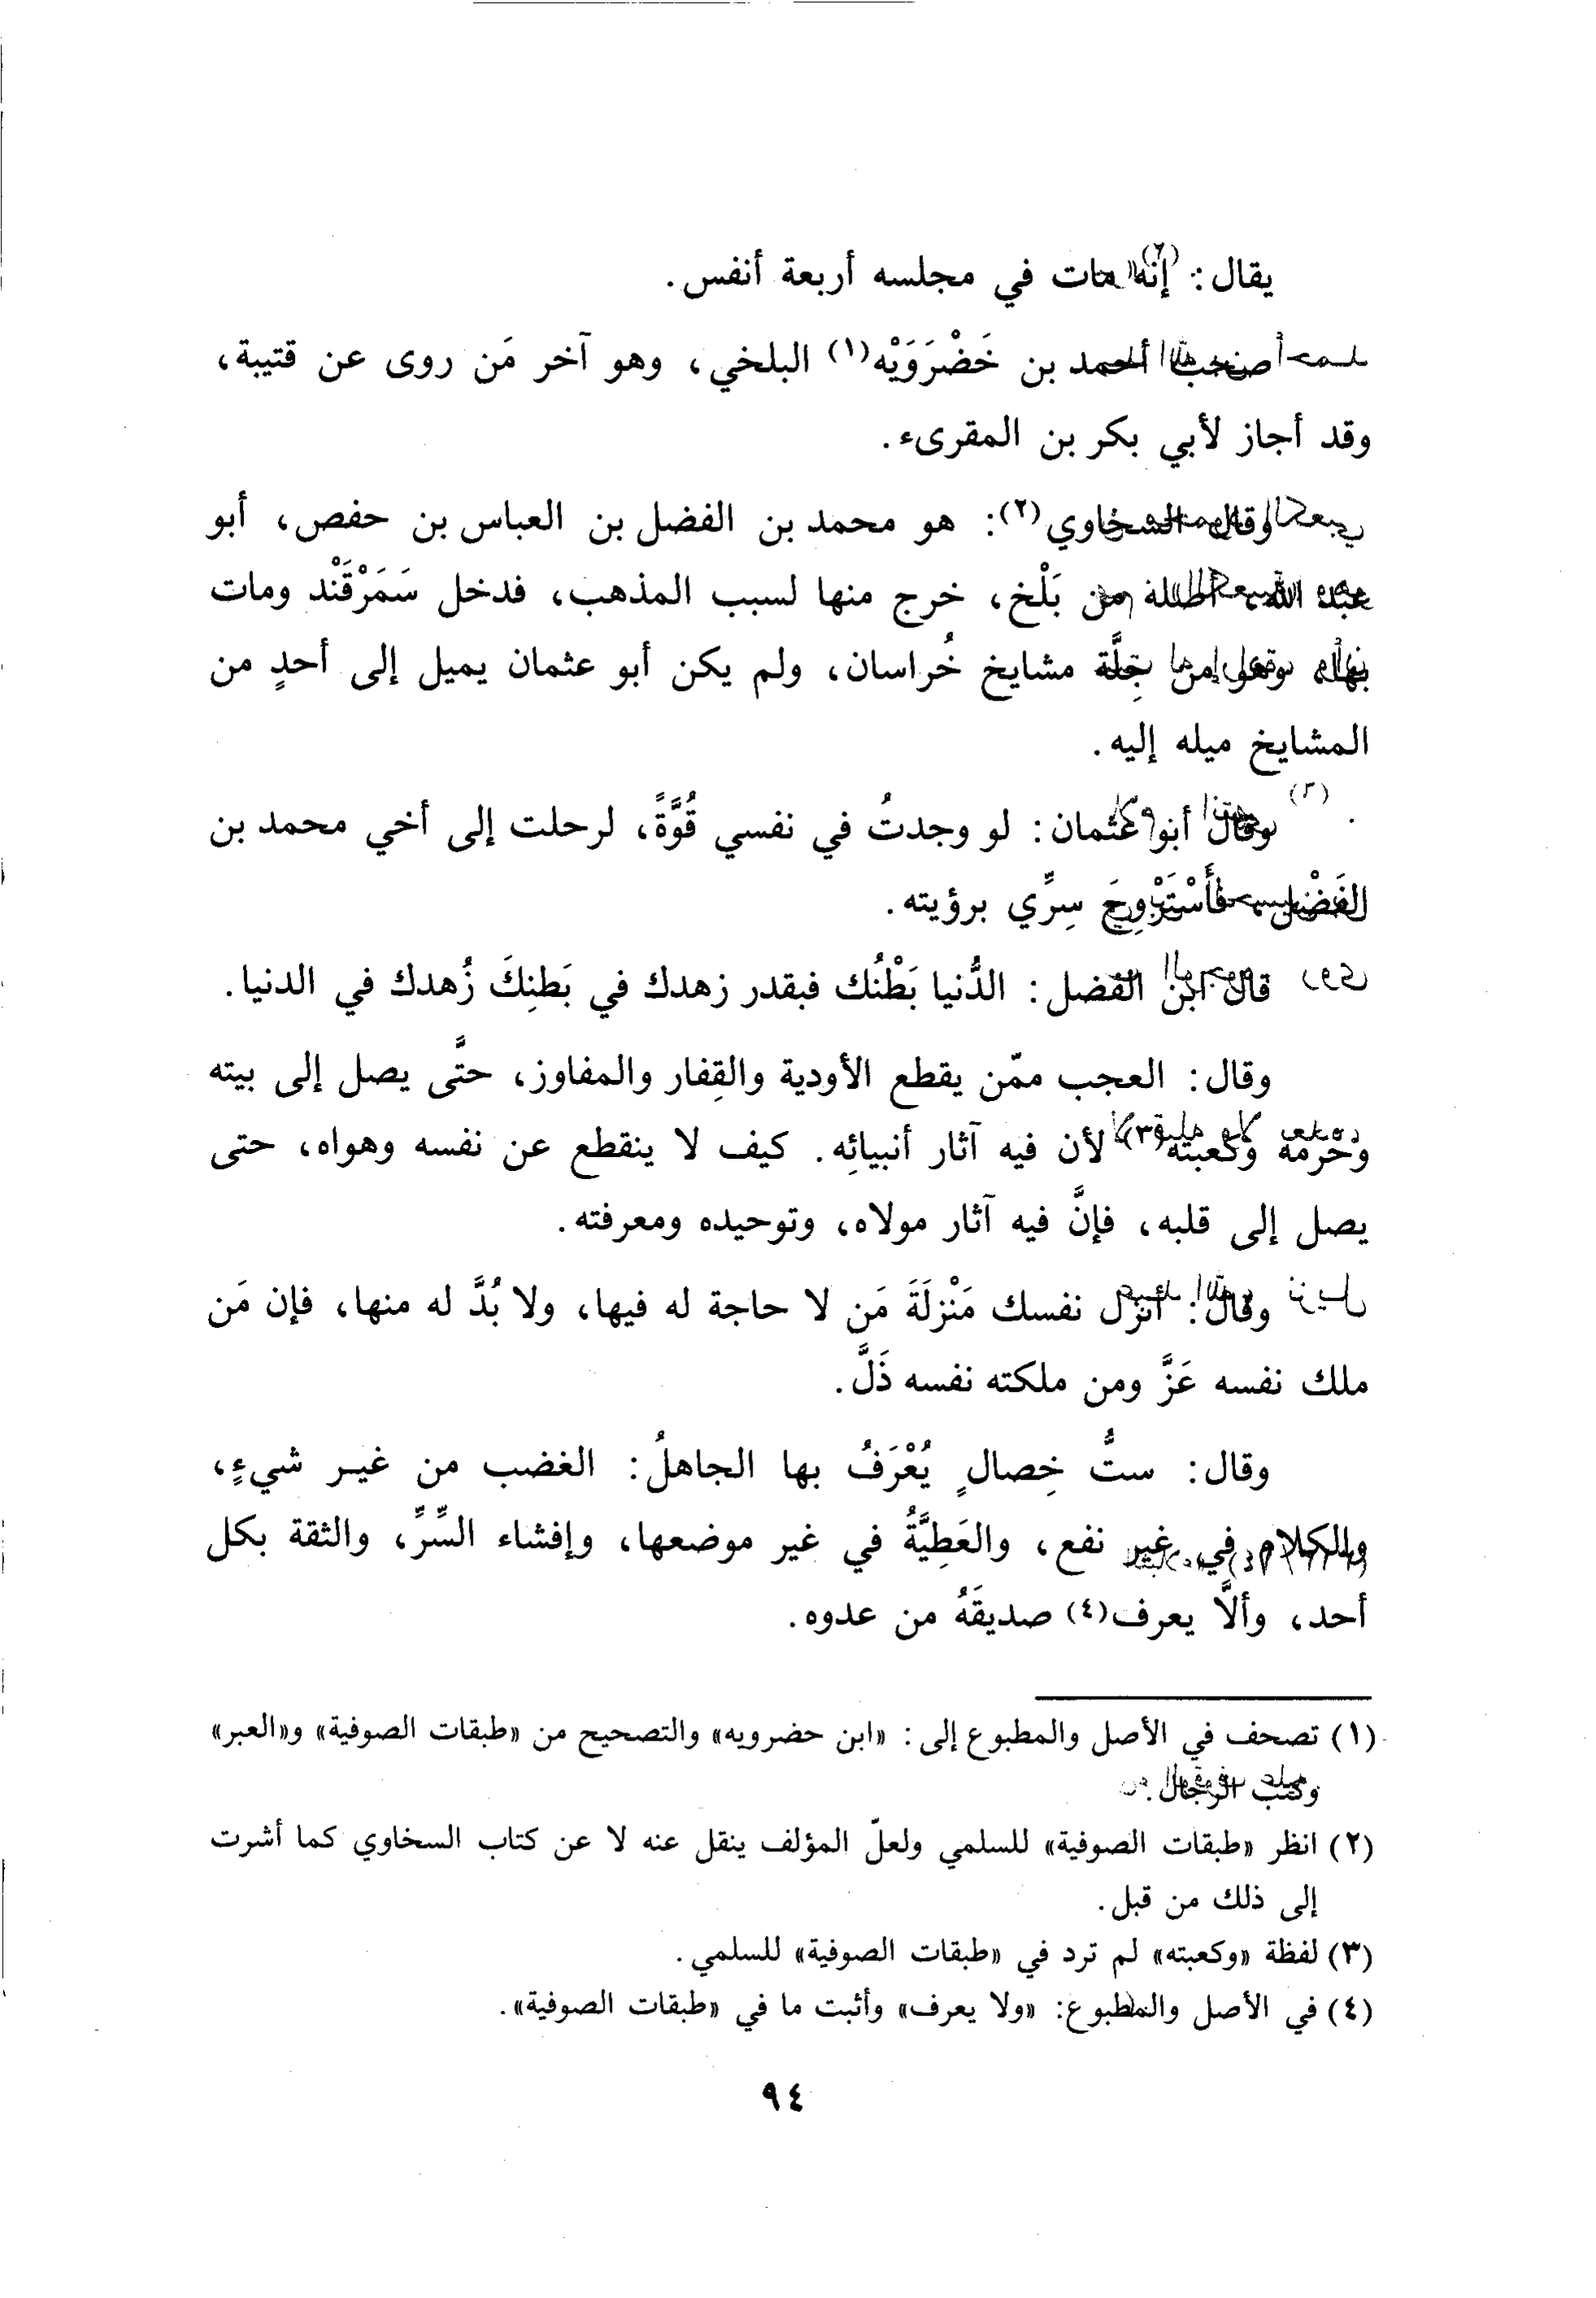 يقال: إنه مات في مجلسه أربعة أنفس.
صحب أحمد بن خَضْرَوَيْه(١) البلخي، وهو آخر مَن روى عن قتيبة،
وقد أجاز لأبي بكر بن المقرىء.
وقال السخاوي(٢): هو محمد بن الفضل بن العباس بن حفص، أبو
عبد الله، أصله من بَلْخ، خرج منها لسبب المذهب، فدخل سَمَرْقَنْد ومات
بها، وهو من جِلَّة مشايخ خُراسان، ولم يكن أبو عثمان يميل إلى أحدٍ من
المشايخ ميله إليه.
وقال أبو عثمان: لو وجدتُ في نفسي قُوَّةً، لرحلت إلى أخي محمد بن
الفَضْل، فأَسْتَرْوِحَ سِرِّي برؤيته.
قال ابن الفضل: الدُّنيا بَطْنُك فبقدر زهدك في بَطنِكَ زُهدك في الدنيا.
وقال: العجب ممّن يقطع الأودية والقِفار والمفاوز، حتَّى يصل إلى بيته
وحرمه وكعبته(٣) لأن فيه آثار أنبيائِه. كيف لا ينقطع عن نفسه وهواه، حتى
يصل إلى قلبه، فإنَّ فيه آثار مولاه، وتوحيده ومعرفته.
وقال: أنزل نفسك مَنْزِلَةَ مَن لا حاجة له فيها، ولا بُدَّ له منها، فإن مَن
ملك نفسه عَزَّ ومن ملكته نفسه ذَلَّ.
وقال: ستُّ خِصالٍ يُعْرَفُ بها الجاهلُ: الغضب من غيـر شيءٍ،
والكلام في غير نفع، والعَطِيَّةُ في غير موضعها، وإفشاء السِّرِّ، والثقة بكل
أحد، وألاَّ يعرف(٤) صديقَهُ من عدوه.
(١) تصحف في الأصل والمطبوع إلى: «ابن حضرويه» والتصحيح من «طبقات الصوفية» و«العبر»
وكتب الرجال.
(٢) انظر «طبقات الصوفية» للسلمي ولعلّ المؤلف ينقل عنه لا عن كتاب السخاوي كما أشرت
إلى ذلك من قبل.
(٣) لفظة «وكعبته» لم ترد في «طبقات الصوفية» للسلمي.
(٤) في الأصل والمطبوع: «ولا يعرف» وأثبت ما في «طبقات الصوفية».
٩٤